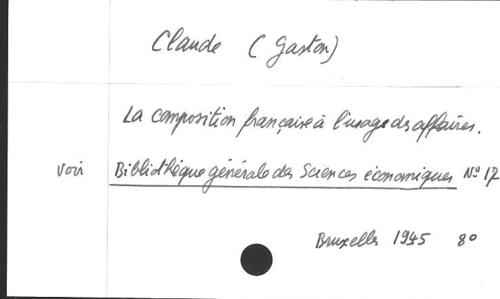 Claude (Gaston)
La composition française à l'usage des affaires.
voir Bibliothèque générale des Sciences économiques N° 17
Bruxelles 1945 8°